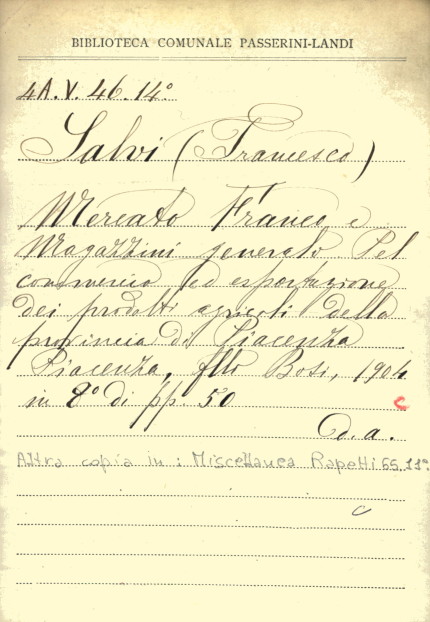 BIBLIOTECA COMUNALE PASSERINI-LANDI
4A.V.46.14º
Salvi (Francesco)
Mercato Franco e
Magazzini generali Pel
commercio ed esportazione
dei prodotti agricoli della
provincia di Piacenza
Piacenza, flli Bosi, 1904
in 8º di pp. 50
C
D. a.
Altra copia in: Miscellanea Rapetti 65.11º